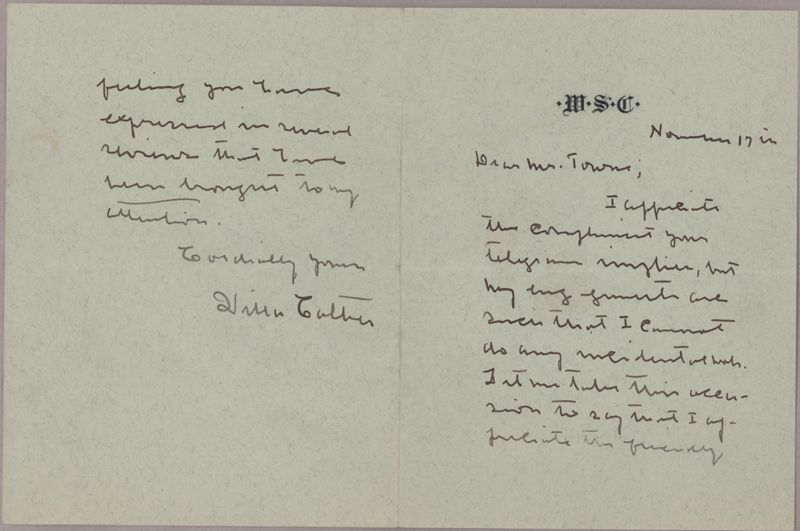 ·W·S·C·
November 17th
Dear Mr. Towne;
I appreciate
the compliment your
telegram implies, but
my engagements are
such that I cannot
do any incidental work.
Let me take this occa-
sion to say that I ap-
preciate the friendly
feeling you have
expressed in several
reviews that have
been brought to my
attention.
Cordially yours
Willa Cather